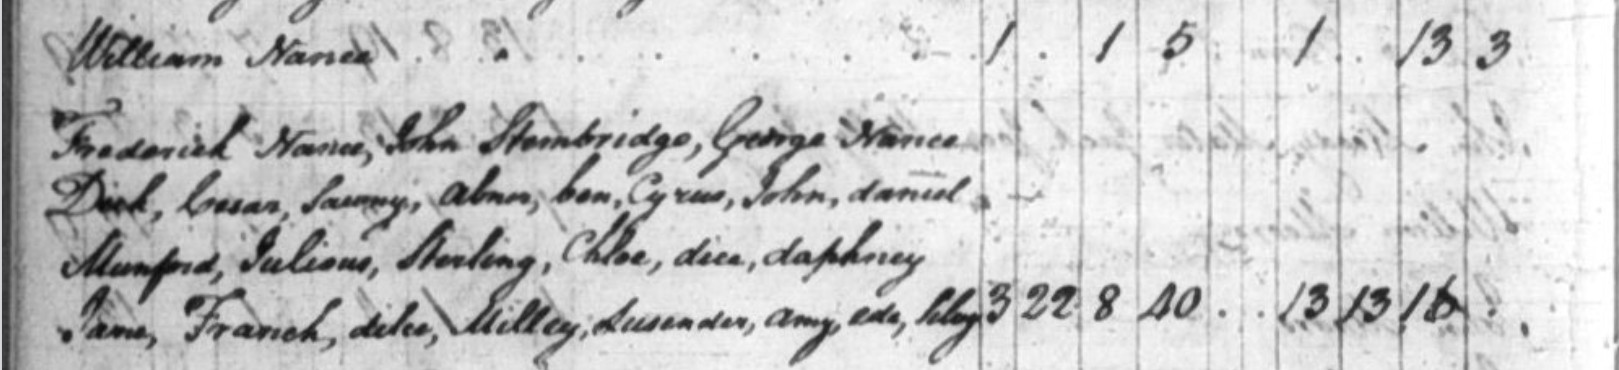 William Nance . . . . . . . 1 . 1 5 1 . . 13 3
Frederick Nance, John Stembridge, George Nance
Dick, Cesar, Sawny, Abner, ben, Cyrus, John, daniel
Munford, Julious, Sterling, Chloe, dice, daphney
Jame, Franck, dilce, Milley, Lusender, Amy, ede, 3 22 8 40 . . 13 13 16